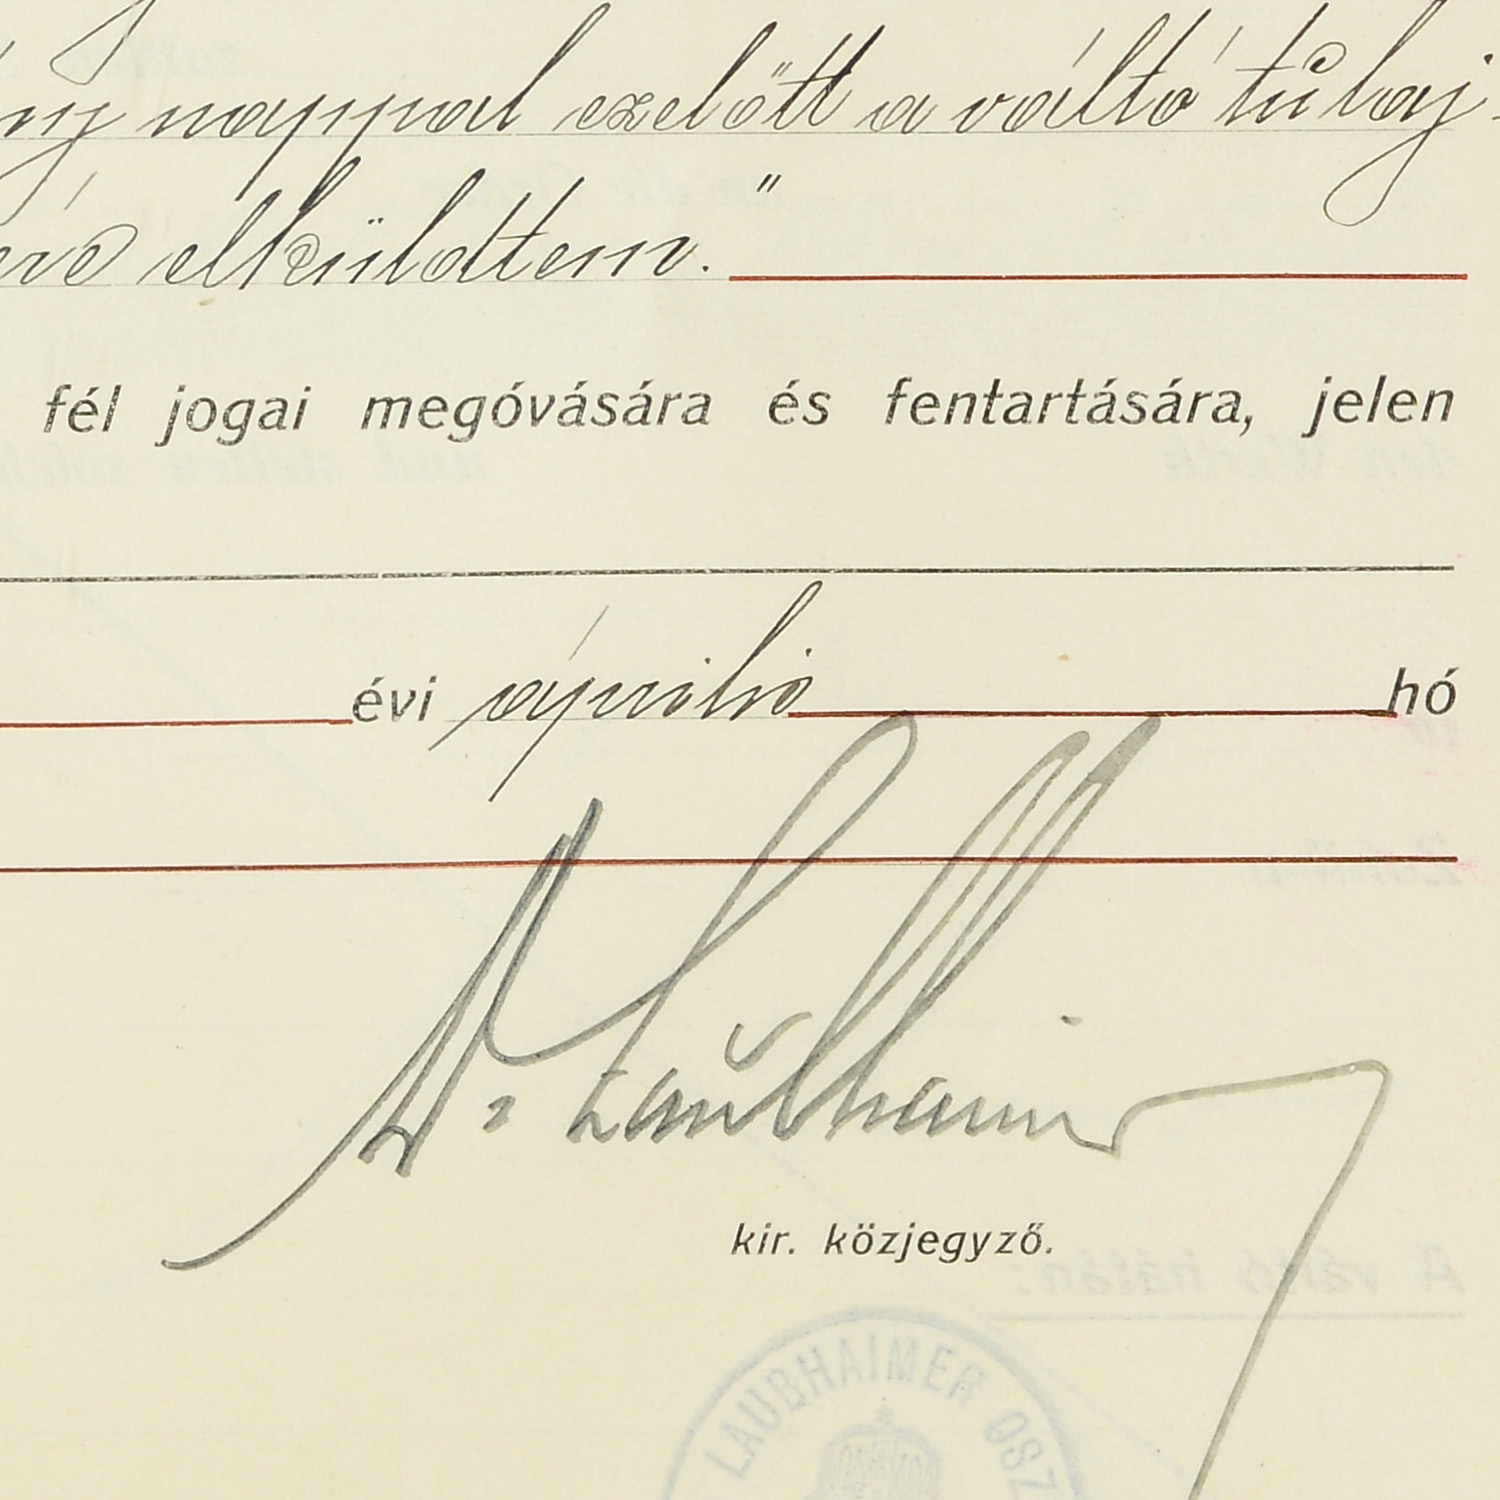 nappal ezelőtt a váltó tulaj-
elküldtem."
fél jogai megóvására és fentartására, jelen
évi április hó
Dr Laubhaimer
kir. közjegyző.
LAUBHAIMER OSZ
A váltó hátán: